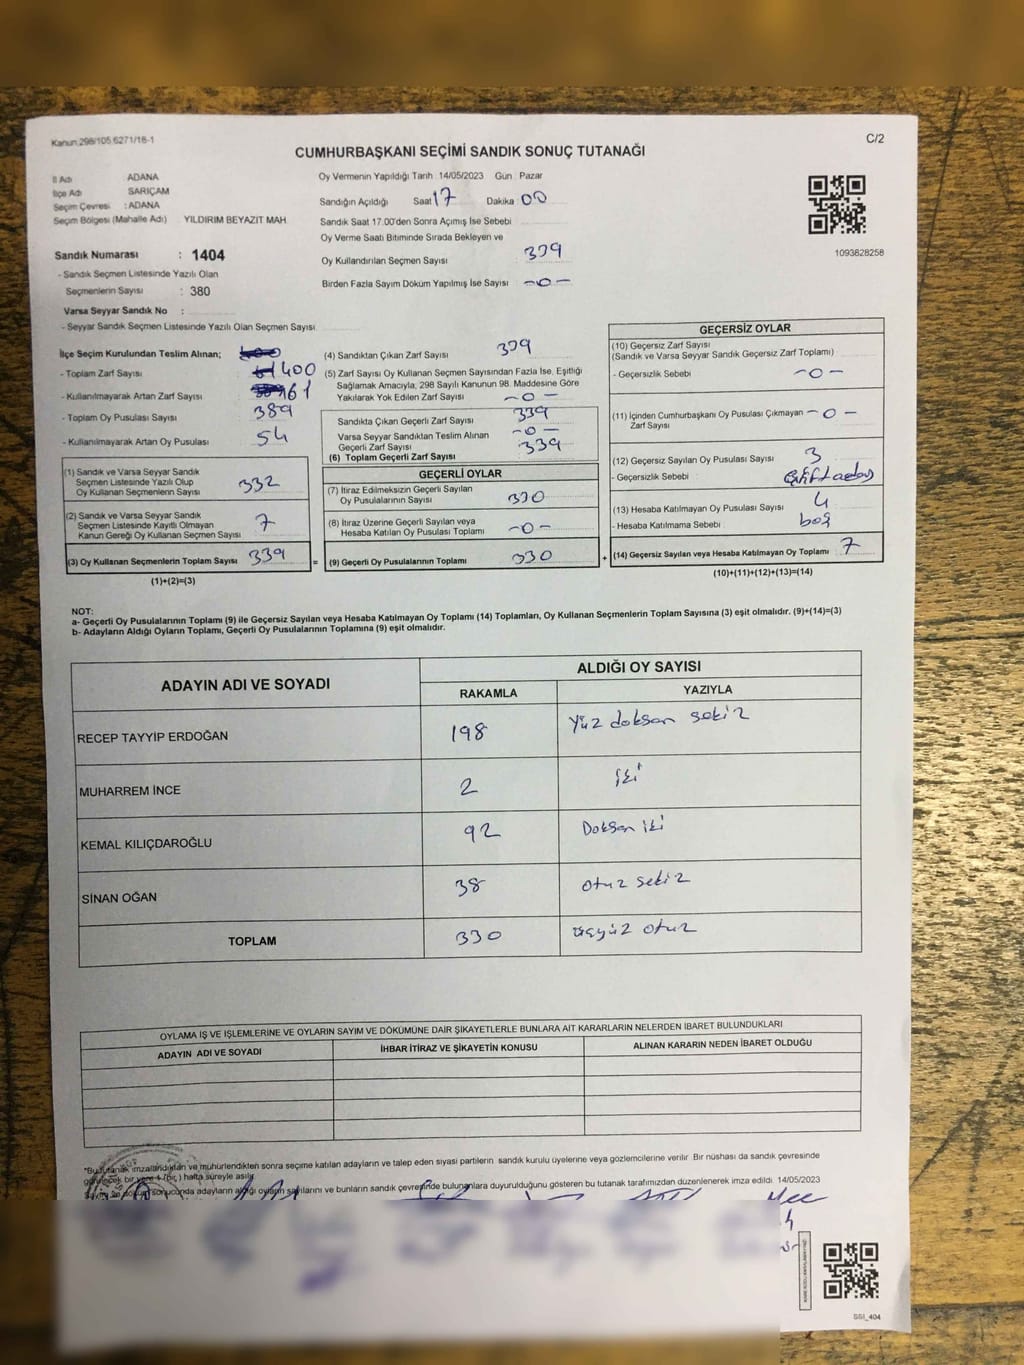 Kanun.298/105.6271/18-1
C/2
CUMHURBAŞKANI SEÇİMİ SANDIK SONUÇ TUTANAĞI
İl Adı : ADANA
İlçe Adı SARIÇAM
Seçim Çevresi : ADANA
Seçim Bölgesi (Mahalle Adı) YILDIRIM BEYAZIT MAH.
Sandık Numarası : 1404
- Sandık Seçmen Listesinde Yazılı Olan
Seçmenlerin Sayısı : 380
Varsa Seyyar Sandık No :
- Seyyar Sandık Seçmen Listesinde Yazılı Olan Seçmen Sayısı
Oy Vermenin Yapıldığı Tarih : 14/05/2023 Gün : Pazar
Sandığın Açıldığı Saat 17 Dakika : 00
Sandık Saat 17.00'den Sonra Açımış İse Sebebi
Oy Verme Saati Bitiminde Sırada Bekleyen ve
Oy Kullandırılan Seçmen Sayısı 339
Birden Fazla Sayım Döküm Yapılmış İse Sayısı -0-
1093828258
İlçe Seçim Kurulundan Teslim Alınan;
- Toplam Zarf Sayısı : 400
- Kullanılmayarak Artan Zarf Sayısı : 61
- Toplam Oy Pusulası Sayısı 389
- Kullanılmayarak Artan Oy Pusulası 54
(1) Sandık ve Varsa Seyyar Sandık
Seçmen Listesinde Yazılı Olup
Oy Kullanan Seçmenlerin Sayısı 332
(2) Sandık ve Varsa Seyyar Sandık
Seçmen Listesinde Kayıtlı Olmayan
Kanun Gereği Oy Kullanan Seçmen Sayısı 7
(3) Oy Kullanan Seçmenlerin Toplam Sayısı 339
(1)+(2)=(3)
(4) Sandıktan Çıkan Zarf Sayısı 339
(5) Zarf Sayısı Oy Kullanan Seçmen Sayısından Fazla İse, Eşitliği
Sağlamak Amacıyla, 298 Sayılı Kanunun 98. Maddesine Göre
Yakılarak Yok Edilen Zarf Sayısı -0-
Sandıkta Çıkan Geçerli Zarf Sayısı 339
Varsa Seyyar Sandıktan Teslim Alınan
Geçerli Zarf Sayısı -0-
(6) Toplam Geçerli Zarf Sayısı 339
GEÇERLİ OYLAR
(7) İtiraz Edilmeksizin Geçerli Sayılan
Oy Pusulalarının Sayısı 330
(8) İtiraz Üzerine Geçerli Sayılan veya
Hesaba Katılan Oy Pusulası Toplamı -0-
= (9) Geçerli Oy Pusulalarının Toplamı 330 +
GEÇERSİZ OYLAR
(10) Geçersiz Zarf Sayısı
(Sandık ve Varsa Seyyar Sandık Geçersiz Zarf Toplamı)
- Geçersizlik Sebebi -0-
(11) İçinden Cumhurbaşkanı Oy Pusulası Çıkmayan
Zarf Sayısı -0-
(12) Geçersiz Sayılan Oy Pusulası Sayısı 3
- Geçersizlik Sebebi : Çift aday
(13) Hesaba Katılmayan Oy Pusulası Sayısı 4
- Hesaba Katılmama Sebebi : boş
(14) Geçersiz Sayılan veya Hesaba Katılmayan Oy Toplamı 7
(10)+(11)+(12)+(13)=(14)
NOT:
a- Geçerli Oy Pusulalarının Toplamı (9) ile Geçersiz Sayılan veya Hesaba Katılmayan Oy Toplamı (14) Toplamları, Oy Kullanan Seçmenlerin Toplam Sayısına (3) eşit olmalıdır. (9)+(14)=(3)
b- Adayların Aldığı Oyların Toplamı, Geçerli Oy Pusulalarının Toplamına (9) eşit olmalıdır.
ADAYIN ADI VE SOYADI
ALDIĞI OY SAYISI
RAKAMLA YAZIYLA
RECEP TAYYİP ERDOĞAN 198 Yüz doksan sekiz
MUHARREM İNCE 2 iki
KEMAL KILIÇDAROĞLU 92 Doksan iki
SİNAN OĞAN 38 otuz sekiz
TOPLAM 330 üçyüz otuz
OYLAMA İŞ VE İŞLEMLERİNE VE OYLARIN SAYIM VE DÖKÜMÜNE DAİR ŞİKAYETLERLE BUNLARA AİT KARARLARIN NELERDEN İBARET BULUNDUKLARI
ADAYIN ADI VE SOYADI İHBAR İTİRAZ VE ŞİKAYETİN KONUSU ALINAN KARARIN NEDEN İBARET OLDUĞU
*Bu tutanak imzalandıktan ve mühürlendikten sonra seçime katılan adayların ve talep eden siyasi partilerin sandık kurulu üyelerine veya gözlemcilerine verilir. Bir nüshası da sandık çevresinde
görülecek bir yere 1 (bir) hafta süreyle asılır.
Sayım ve döküm sonucunda adayların aldığı oyların sayılarını ve bunların sandık çevresinde bulunanlara duyurulduğunu gösteren bu tutanak tarafımızdan düzenlenerek imza edildi. 14/05/2023
SSI_404